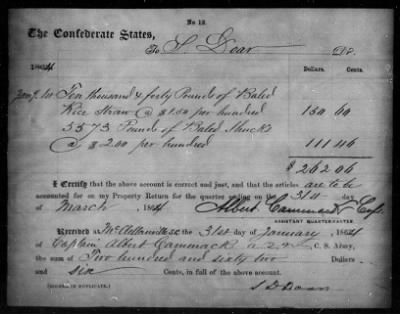 No 18.
The Confederate States,
To S. Doar DR.
1864 Dollars. Cents.
Jany. Ten thousand & forty Pounds of Baled
Rice Straw @ $1.50 per hundred 150 60
5573 Pounds of Baled Shucks
@ $2.00 per hundred 111 46
$262 06
I Certify that the above account is correct and just, and that the articles are to be
accounted for on my Property Return for the quarter ending on the 31st day
of March 1864 Albert Cammack Capt
ASSISTANT QUARTERMASTER.
Received at McClellanville SC the 31st of January 1864
of Captain Albert Cammack a C. S. Army,
the sum of Two hundred and sixty two
and six Cents, in full of the above account.
(SIGNED IN DUPLICATE.) S D Doar